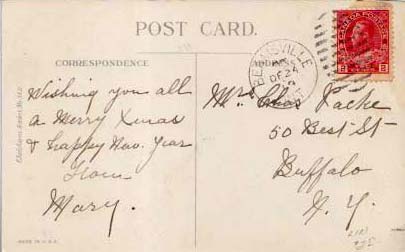 POST CARD.
CORRESPONDENCE
ADDRESS
BEAMSVILLE
DE 24
ONT
CANADA POSTAGE
2 2
Wishing you all
a Merry Xmas
& happy New Year
From
Mary.
Mrs Chas Packe
50 Best St
Buffalo
N. Y.
MADE IN U.S.A.